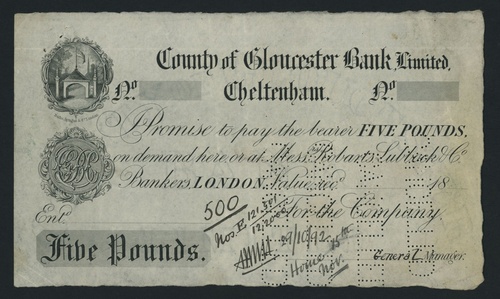 County of Gloucester Bank Limited,
No Cheltenham. No
I Promise to pay the bearer FIVE POUNDS,
on demand here or at Messrs. Robarts, Lubbock & Co
Bankers, LONDON, Value recd 18
500 For the Company.
Entd
Nos. E 121.501
12/2000
29/10/92
Home 15th
Nov.
Five Pounds.
General Manager.